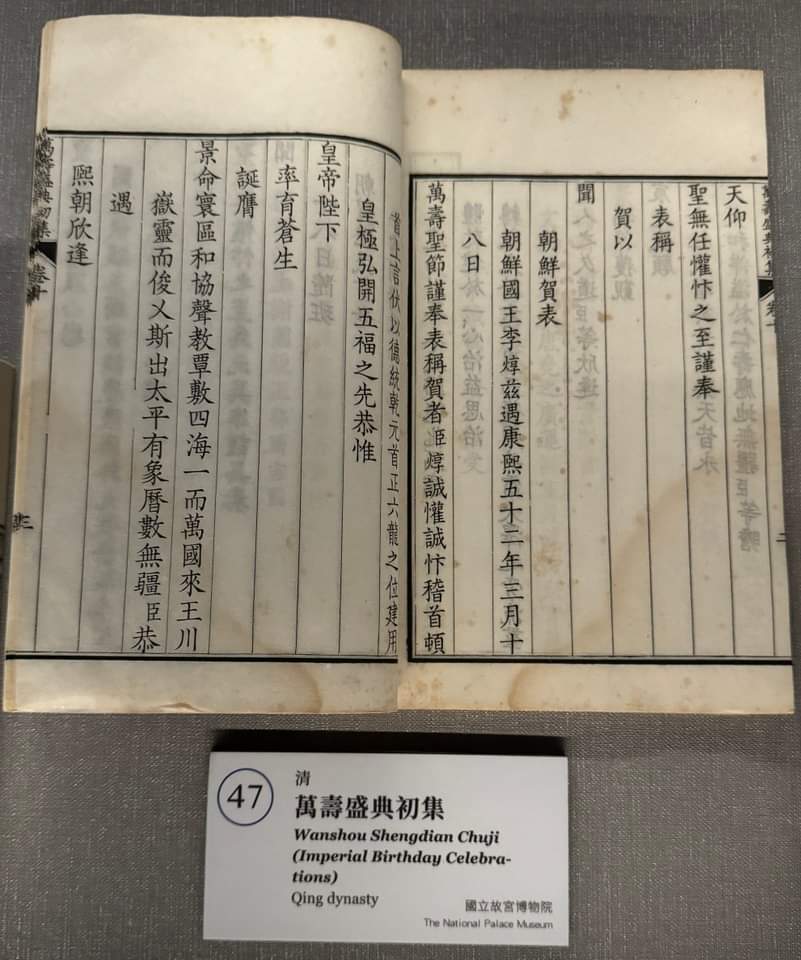 萬壽盛典初集 卷十 二
天仰
聖無任懽忭之至謹奉
表稱
賀以
聞
朝鮮賀表
朝鮮國王李焞茲遇康熙五十二年三月十
八日
萬壽聖節謹奉表稱賀者臣焞誠懽誠忭稽首頓
首上言伏以德統乾元首正六龍之位建用
皇極弘開五福之先恭惟
皇帝陛下
率育蒼生
誕膺
景命寰區和協聲教覃敷四海一而萬國來王川
嶽靈而俊乂斯出太平有象曆數無疆臣恭
遇
熙朝欣逢
萬壽盛典初集 卷十 三
47
清
萬壽盛典初集
Wanshou Shengdian Chuji
(Imperial Birthday Celebra-
tions)
Qing dynasty
國立故宮博物院
The National Palace Museum